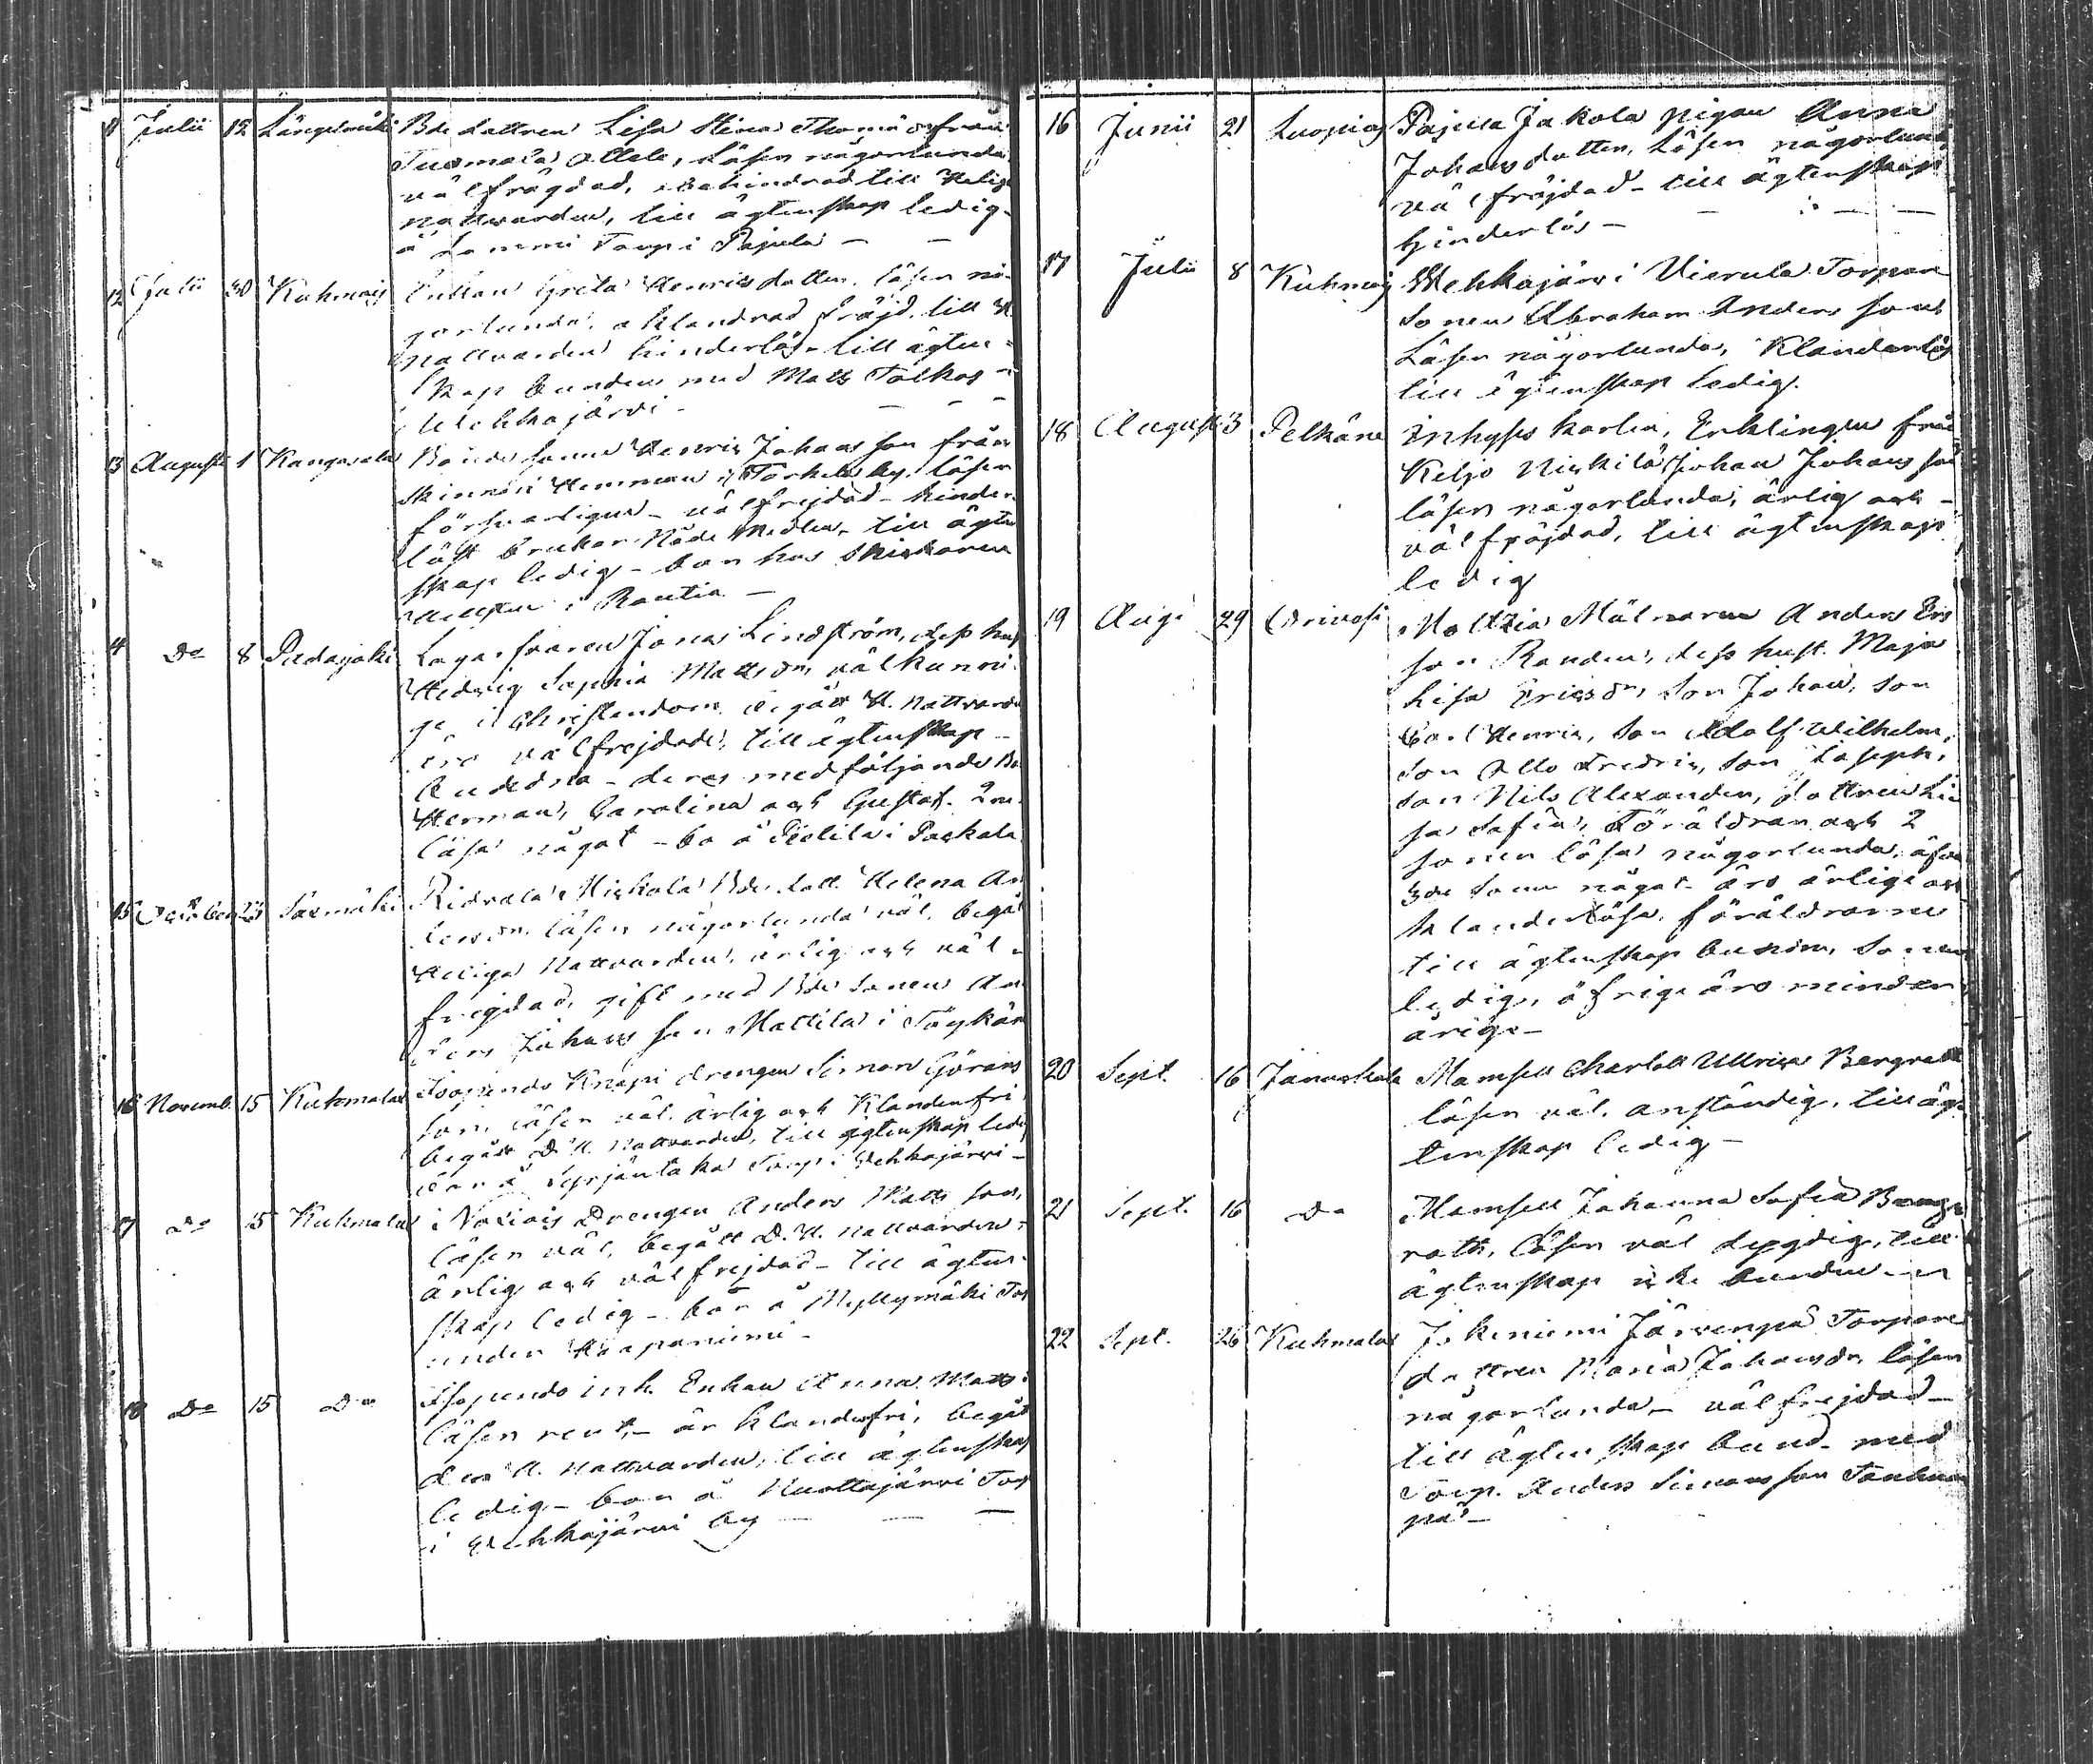 11 Julii 12 Längelmäki Bde dottren Lisa Stina Thomædr från
Tuomala Ollele, Läser någorlunda
välfrägdad, obehindrad till Helig
nattvarden, till ägtenskap ledig
å Torp i Pajula —
12 Julii 30 Kuhmois Enkan Greta Henricsdotter. läser nå-
gorlunda, oklandrad fräjd, till H.
nattvarden hinderlös, till ägten-
skap bunden med Matts Tolkas
i Wehkajärvi —
13 Augusti 1 Kangasala Bonde sonen Henric Johansson från
Skinnari Hemman i Torkela by. läser
försvarligen — välfrejdad — hinder-
löst brukar Nåde Medlen, till ägten
skap ledig — bor hos Skickaren
i Rautia —
4 Do 8 Padasjoki Jonas Lindström, dess hust
Hedvig Sophia Mattsdr, välkunni-
ge i Christendom. begått H. nattvarden
äro välfrejdade, till ägtenskap
— deras medföljande Barn
Herman, Carolina och Gustaf. 2ne
läsa något — bo å i Packala
15 October 25 Säxmäki Ridvala Mickola Bde dott. Helena An
dersdr. läser någorlunda väl. begått
Heliga Nattvarden, ärlig och väl-
frejdad, gift med Bde sonen An
ders Johansson Mattila i
16 Novemb. 15 Kuhmalax Isopendo Knapi drengen Simon Görans
son, läser väl. ärlig och Klanderfri
begått D. H. Nattvarden, till ägtenskap ledig
bor å Torp i Wehkajärvi —
17 Do 15 Kuhmalax i Drengen Anders Matts son,
läser väl, begått D. H. nattvarden,
ärlig och välfrejdad — till ägten-
skap ledig — bor å Myllymäki Tor
under Haapaniemi —
18 Do 15 Do Isopendo inh. Enkan Anna Matts:
läser rent, — är klanderfri, begått
den H. nattvarden, till ägtenskap
ledig — bor å Huottajärvi Torp
i Wehkajärvi by — — —
16 Junii 21 Luopiois Pajula Jakola pigan Anna
Johansdotter, Läser någorlund
välfräjdad — till ägtenskap
hinderlös —
17 Julii 8 Kuhmois Wehkajärvi Vierula Torpare
Sonen Abraham Anders son
Läser någorlunda, Klanderlös
till ägtenskap ledig.
18 August 3 Pelkäne Inhyses karlen, Enklingen från
Keljo Niskila Johan Johansson
läser någorlunda, ärlig och —
välfräjdad, till ägtenskap
ledig
19 Aug. 29 Orivesi Anders Eris
son Randen, dess hust. Maja
Lisa Ericsdr, Son Johan, son
Carl Henric, Son Adolf Wilhelm,
Son Otto Fredric, Son Joseph,
Son Nils Alexander, dottren Li
sa Safia, Föräldran och 2
sonen läsa någorlunda, äfven
3die sonen något — äro ärlige och
klanderlösa, föräldrarne
till ägtenskap bundne, Sonen
ledig, öfrige äro minder
årige —
20 Sept. 16 Janackala Mamsell Charlott Ullrica Bergrath
läser väl. anständig, till äg-
tenskap ledig —
21 Sept. 16 Do Mamsell Johanna Sofia Berg
rath, läser väl dygdig, till
ägtenskap icke bunden —
22 Sept. 26 Kuhmalax Järvenpä Torpare
dottren Maria Johansdr läser
någorlunda — välfrejdad —
till ägtenskap bund. med
Torp. Anders Simonsson
pä —